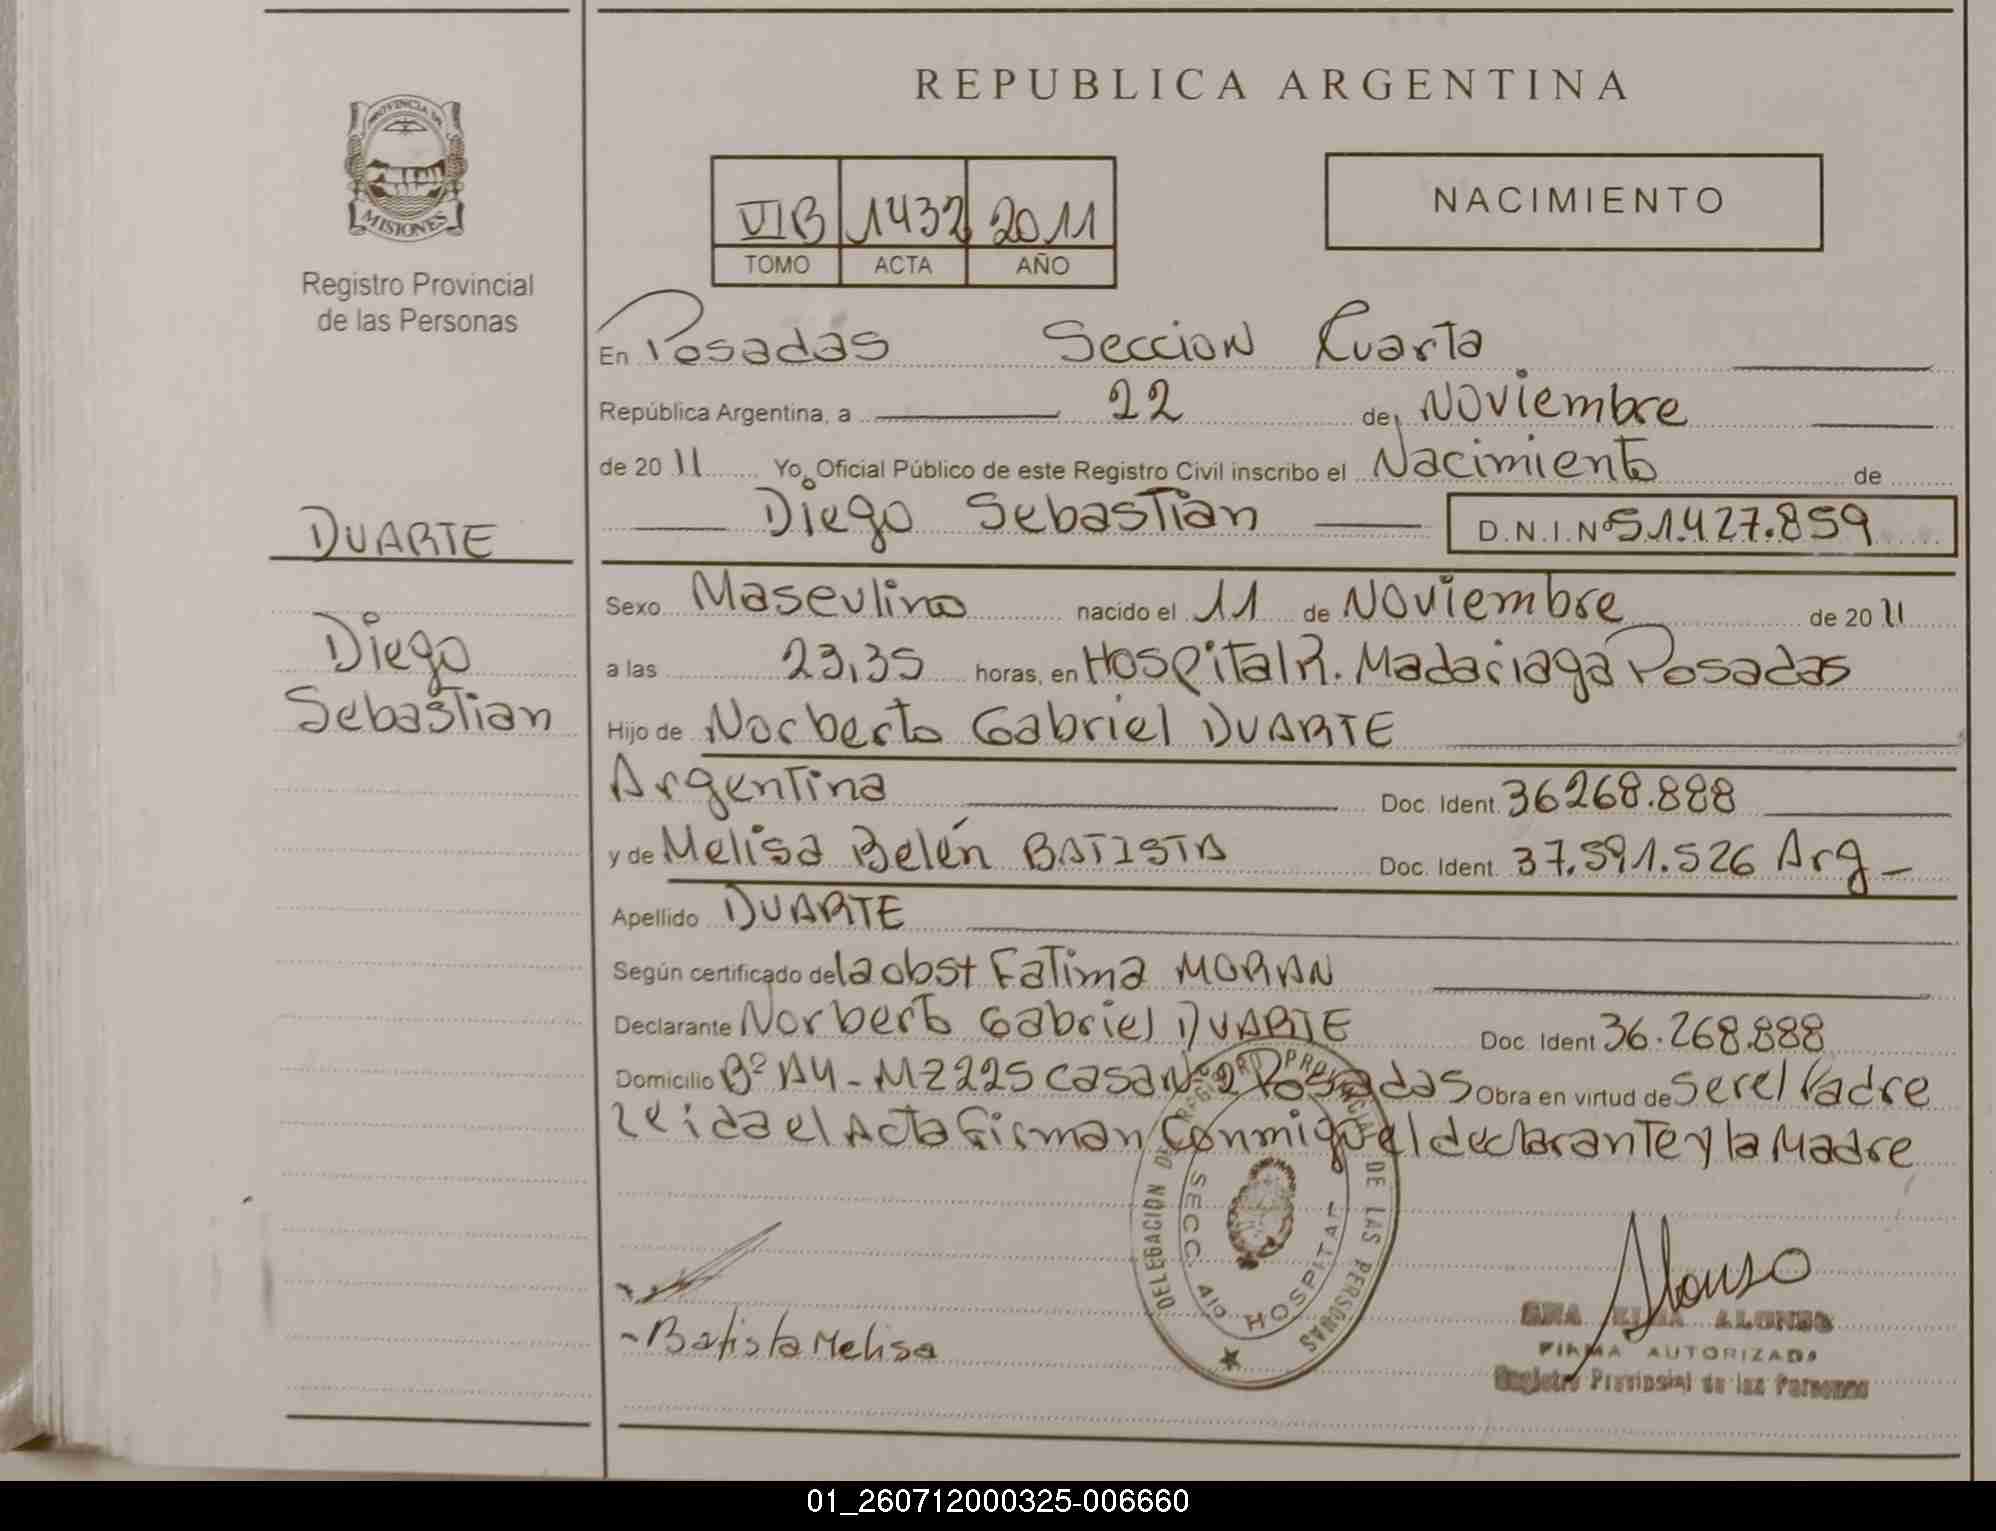 REPUBLICA ARGENTINA
PROVINCIA DE
MISIONES
Registro Provincial
de las Personas
VIB 1432 2011
TOMO ACTA AÑO
NACIMIENTO
En Posadas Seccion Cuarta
República Argentina, a 22 de Noviembre
de 2011 Yo, Oficial Público de este Registro Civil inscribo el Nacimiento de
Diego Sebastian D.N.I.Nº 51.427.859
DUARTE
Diego
Sebastian
Sexo Masculino nacido el 11 de Noviembre de 2011
a las 23,35 horas, en Hospital R. Madariaga Posadas
Hijo de Norberto Gabriel DUARTE
Argentina Doc. Ident. 36268.888
y de Melisa Belén BATISTA Doc. Ident. 37.591.526 Arg
Apellido DUARTE
Según certificado de la obst Fatima MORAN
Declarante Norberto Gabriel DUARTE Doc. Ident 36.268.888
Domicilio Bº A4 - MZ 225 casa Nº 2 Posadas Obra en virtud de Ser el Padre
leida el Acta firman Conmigo el declarante y la Madre
DELEGACION DE REGISTRO PROVINCIAL DE LAS PERSONAS
SECC. 4ta HOSPITAL
- Batista Melisa
Alonso
ALONSO
FIRMA AUTORIZADA
Registro Provincial de las Personas
01_260712000325-006660